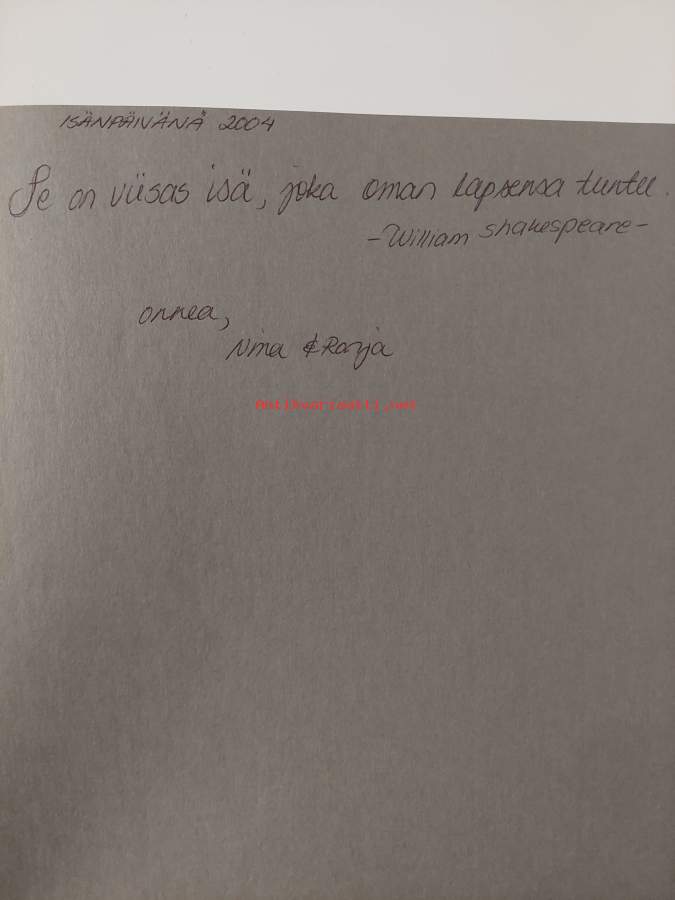 ISÄNPÄIVÄNÄ 2004
Se on viisas isä, joka oman lapsensa tuntee.
-William Shakespeare-
onnea,
Nina & Ronja
Antikvariaatti.net